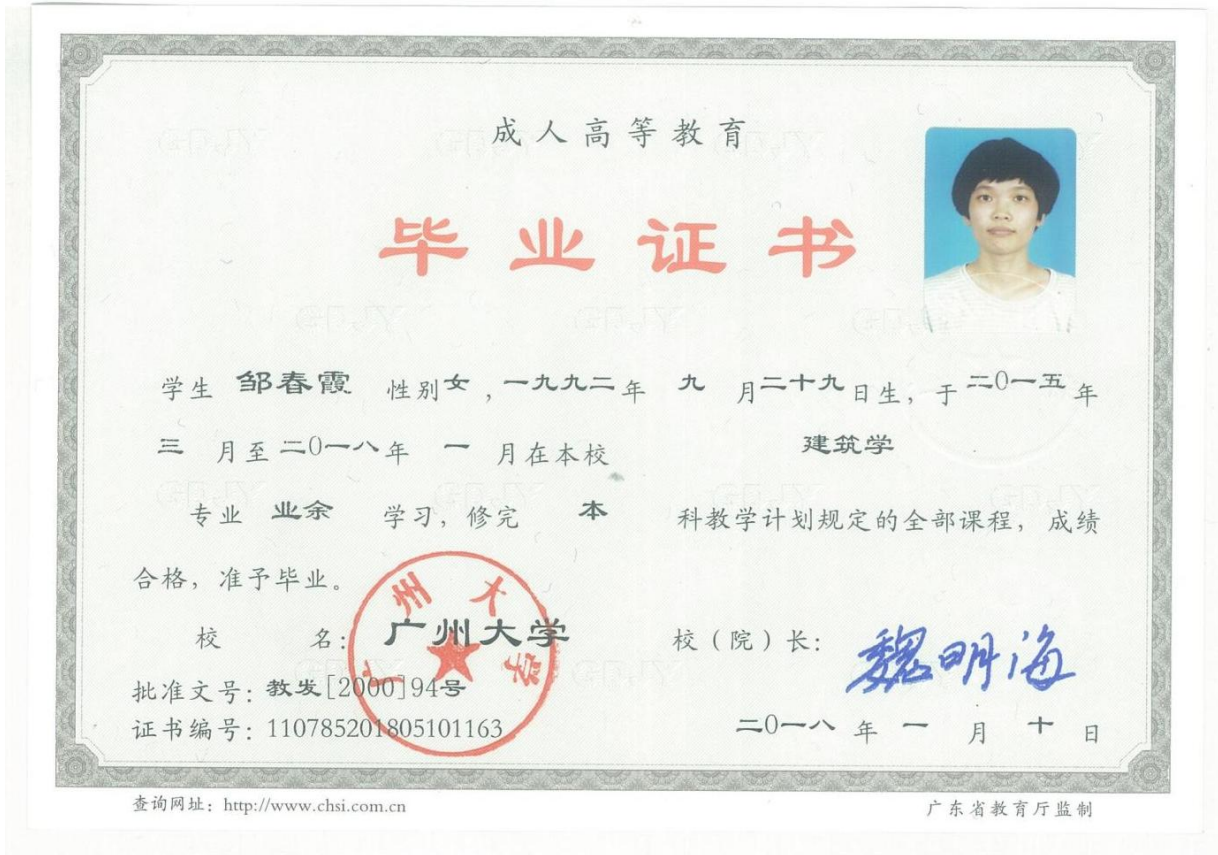 成人高等教育
毕业证书
学生 邹春霞 性别 女 ，一九九二 年 九 月 二十九 日生，于 二0一五 年
三 月至 二0一八 年 一 月在本校 建筑学
专业 业余 学习，修完 本 科教学计划规定的全部课程，成绩
合格，准予毕业。
广州大学
校 名：广州大学 校（院）长：魏明海
批准文号：教发[2000]94号
证书编号：110785201805101163
二0一八 年 一 月 十 日
查询网址：http://www.chsi.com.cn 广东省教育厅监制